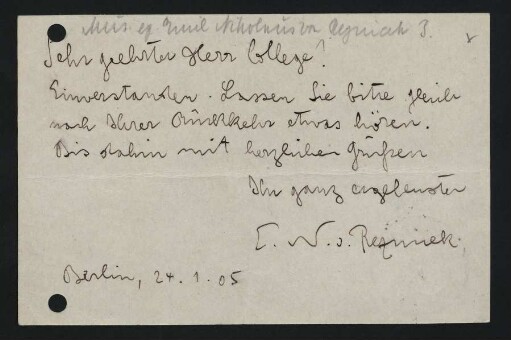 Mus. ep. Emil Nikolaus von Reznicek 3.
Sehr geehrter Herr College!
Einverstanden. Lassen Sie bitte gleich
nach Ihrer Rückkehr etwas hören.
Bis dahin mit herzlichen Grüßen
Ihr ganz ergebenster
E. N. v. Reznicek.
Berlin, 24. 1. 05